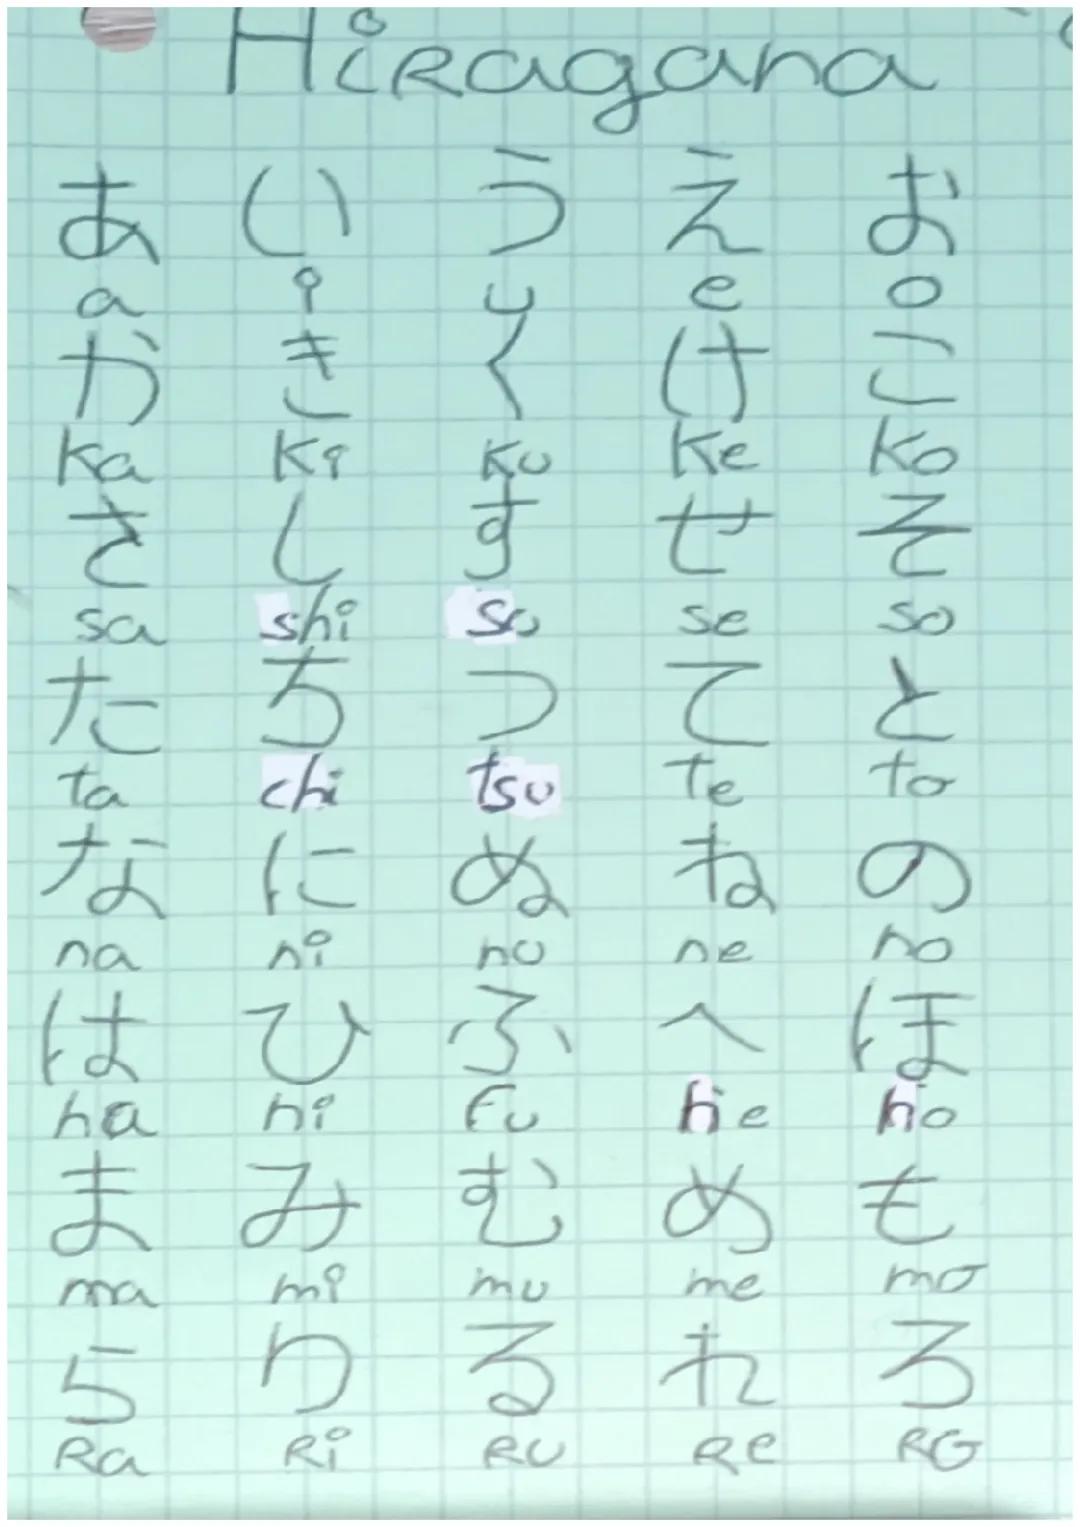 Hiragana
あ い う え お
a i u e o
か き く け こ
ka ki ku ke ko
さ し す せ そ
sa shi su se so
た ち つ て と
ta chi tsu te to
な に ぬ ね の
na ni nu ne no
は ひ ふ へ ほ
ha hi fu he ho
ま み む め も
ma mi mu me mo
ら り る れ ろ
Ra Ri Ru Re Ro